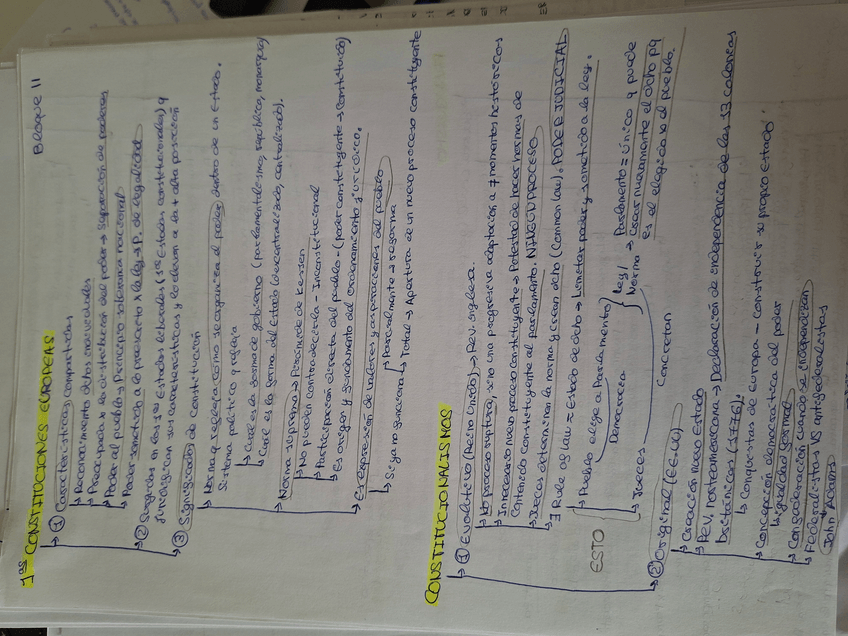 Bloque II
1as CONSTITUCIONES EUROPEAS
① Características compartidas
Reconocimiento dchos individuales
Preocupada x la distribución del poder → Separación de poderes
Poder al pueblo y Principio soberanía nacional
Poder sometido a lo prescrito x la ley → P. de legalidad
② Surgidas en los 1os Estados liberales (1os Estados constitucionales) q
sus características y lo elevan a la + alta posición
③ Significado de constitución
Norma q refleja cómo se organiza el poder dentro de un Estado.
Sistema político y refleja
Cuál es la forma de gobierno (parlamentarismo, república, monarquía)
Cuál es la forma del Estado (descentralizado, centralizado).
Norma suprema → Pirámide de Kelsen
No pueden contradecirla - Inconstitucional
Participación directa del pueblo - (poder constituyente → Constitución)
Es origen y fundamento del ordenamiento jurídico.
Es expresión de valores y aspiraciones del pueblo
Si ya no funciona
Parcialmente → reforma
Total → Apertura de un nuevo proceso constituyente
CONSTITUCIONALISMOS
① Evolutivo (Reino Unido) → Rev. inglesa
No proceso ruptura, sino una progresiva adaptación a ≠ momentos históricos
Innecesario nuevo proceso constituyente → Potestad de hacer normas de
contenido constituyente al parlamento. NINGÚN PROCESO
Jueces determinan la norma y crean dcho (Common law). PODER JUDICIAL
∃ Rule of law = Estado de dcho → Limitar poder y sometido a la ley.
ESTO
Pueblo elige a Parlamento
Democracia
Ley/
Norma → Parlamento = único q puede
crear nuevamente el dcho pq
es el elegido x el pueblo.
Jueces
Concretan
② Original (EE.UU)
Creación nuevo Estado
Rev. norteamericana → Declaración de independencia de las 13 colonias
británicas (1776).
Conquistas de Europa - Construir su propio Estado
Concepción democrática del poder
igualdad formal
Confederación cuando se independizan
Federalistas VS antifederalistas
John Adams